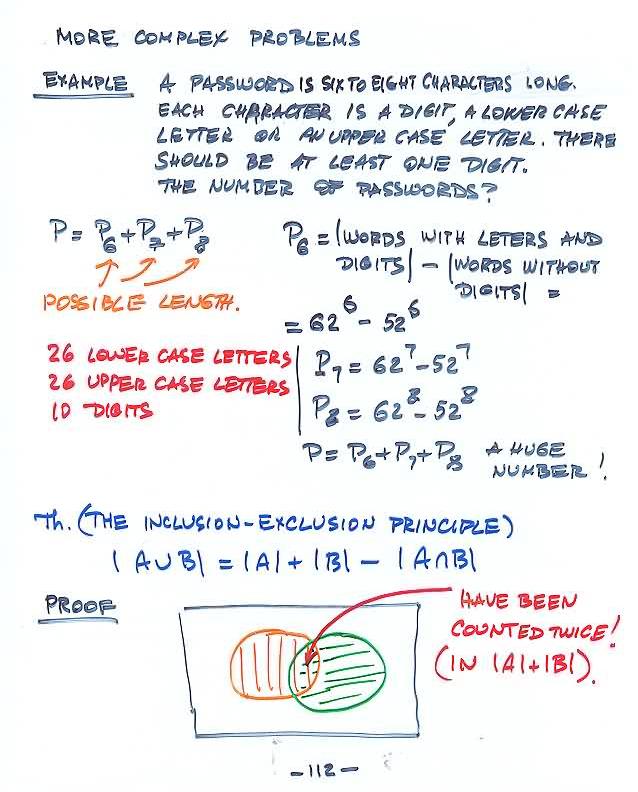 MORE COMPLEX PROBLEMS
EXAMPLE A PASSWORD IS SIX TO EIGHT CHARACTERS LONG.
EACH CHARACTER IS A DIGIT, A LOWER CASE
LETTER OR AN UPPER CASE LETTER. THERE
SHOULD BE AT LEAST ONE DIGIT.
THE NUMBER OF PASSWORDS?
P = P₆ + P₇ + P₈
POSSIBLE LENGTH.
P₆ = |WORDS WITH LETERS AND
DIGITS| - |WORDS WITHOUT
DIGITS| =
= 62⁶ - 52⁶
26 LOWER CASE LETTERS
26 UPPER CASE LETTERS
10 DIGITS
P₇ = 62⁷ - 52⁷
P₈ = 62⁸ - 52⁸
P = P₆ + P₇ + P₈ A HUGE
NUMBER!
Th. (THE INCLUSION-EXCLUSION PRINCIPLE)
|A∪B| = |A| + |B| - |A∩B|
PROOF
HAVE BEEN
COUNTED TWICE!
(IN |A|+|B|).
-112-